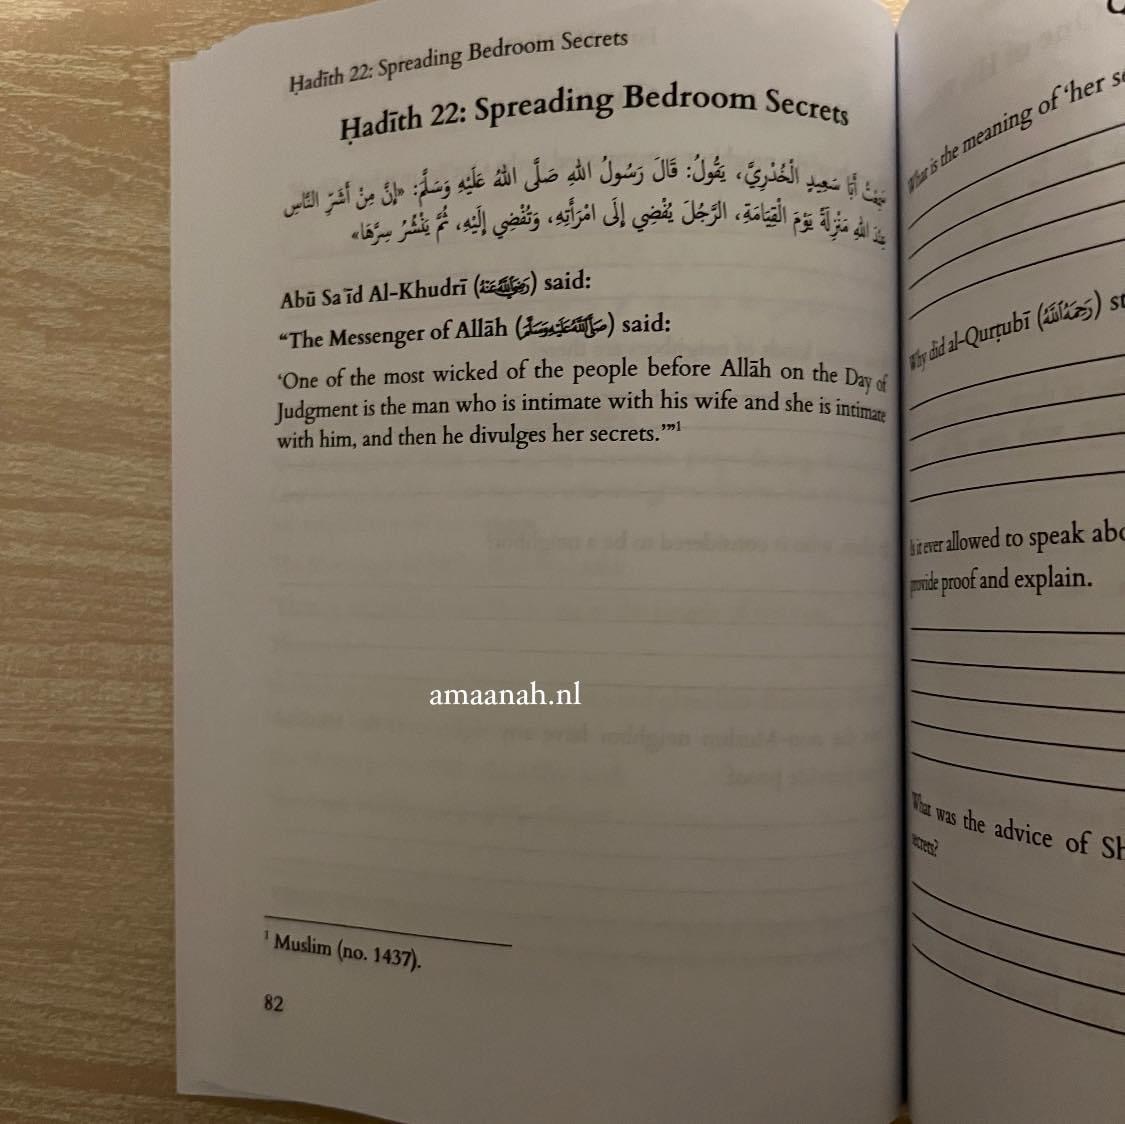 Ḥadīth 22: Spreading Bedroom Secrets
Ḥadīth 22: Spreading Bedroom Secrets
سَمِعْتُ أَبَا سَعِيدٍ الْخُدْرِيَّ، يَقُولُ: قَالَ رَسُولُ اللهِ صَلَّى اللهُ عَلَيْهِ وَسَلَّمَ: «إِنَّ مِنْ أَشَرِّ النَّاسِ
عِنْدَ اللهِ مَنْزِلَةً يَوْمَ الْقِيَامَةِ، الرَّجُلَ يُفْضِي إِلَى امْرَأَتِهِ، وَتُفْضِي إِلَيْهِ، ثُمَّ يَنْشُرُ سِرَّهَا»
Abū Saʿīd Al-Khudrī (رَضِيَ اللَّهُ عَنْهُ) said:
“The Messenger of Allāh (صَلَّى اللَّهُ عَلَيْهِ وَسَلَّمَ) said:
‘One of the most wicked of the people before Allāh on the Day of
Judgment is the man who is intimate with his wife and she is intimate
with him, and then he divulges her secrets.’”1
amaanah.nl
1 Muslim (no. 1437).
82
What is the meaning of ‘her
Why did al-Qurṭubī (رَحِمَهُ اللَّهُ)
Is it ever allowed to speak
provide proof and explain.
What was the advice of
secrets?